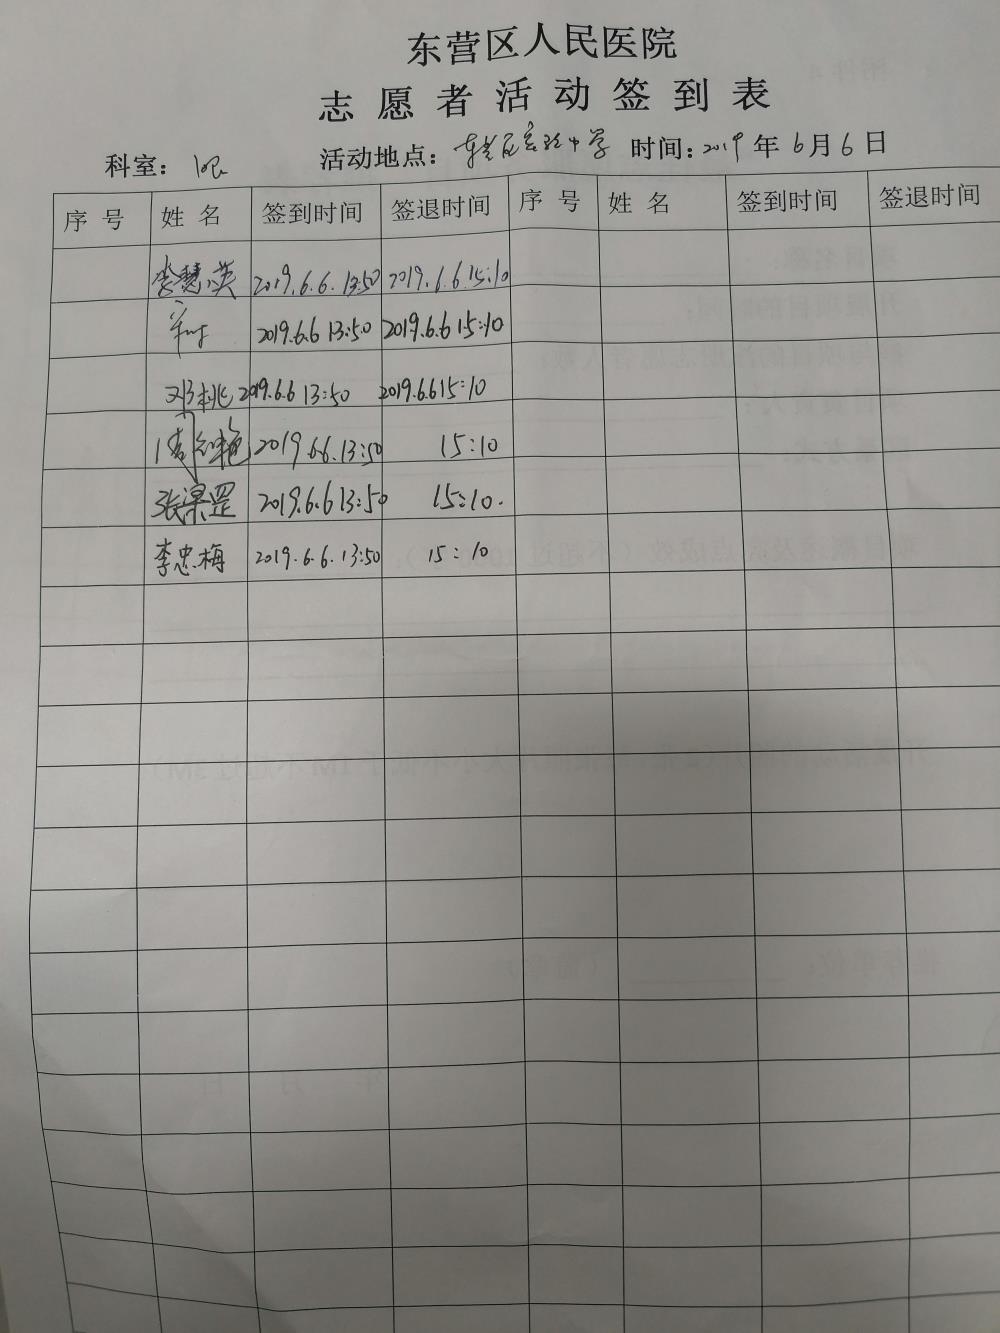 东营区人民医院
志愿者活动签到表
科室：眼 活动地点：东营区实验中学 时间：2019年6月6日
序号 姓名 签到时间 签退时间 序号 姓名 签到时间 签退时间
李慧英 2019.6.6.13:50 2019.6.6.15:10
2019.6.6 13:50 2019.6.6 15:10
邓桃 2019.6.6 13:50 2019.6.6 15:10
2019.6.6.13:50 15:10
张梁罡 2019.6.6 13:50 15:10.
李忠梅 2019.6.6.13:50 15:10